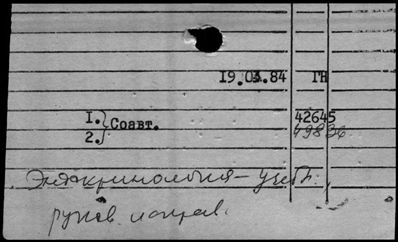 19.03.84 ГН
1.} Соавт. 42645
2.} 49836
Эндокринология – учебн.
руков. исправ.